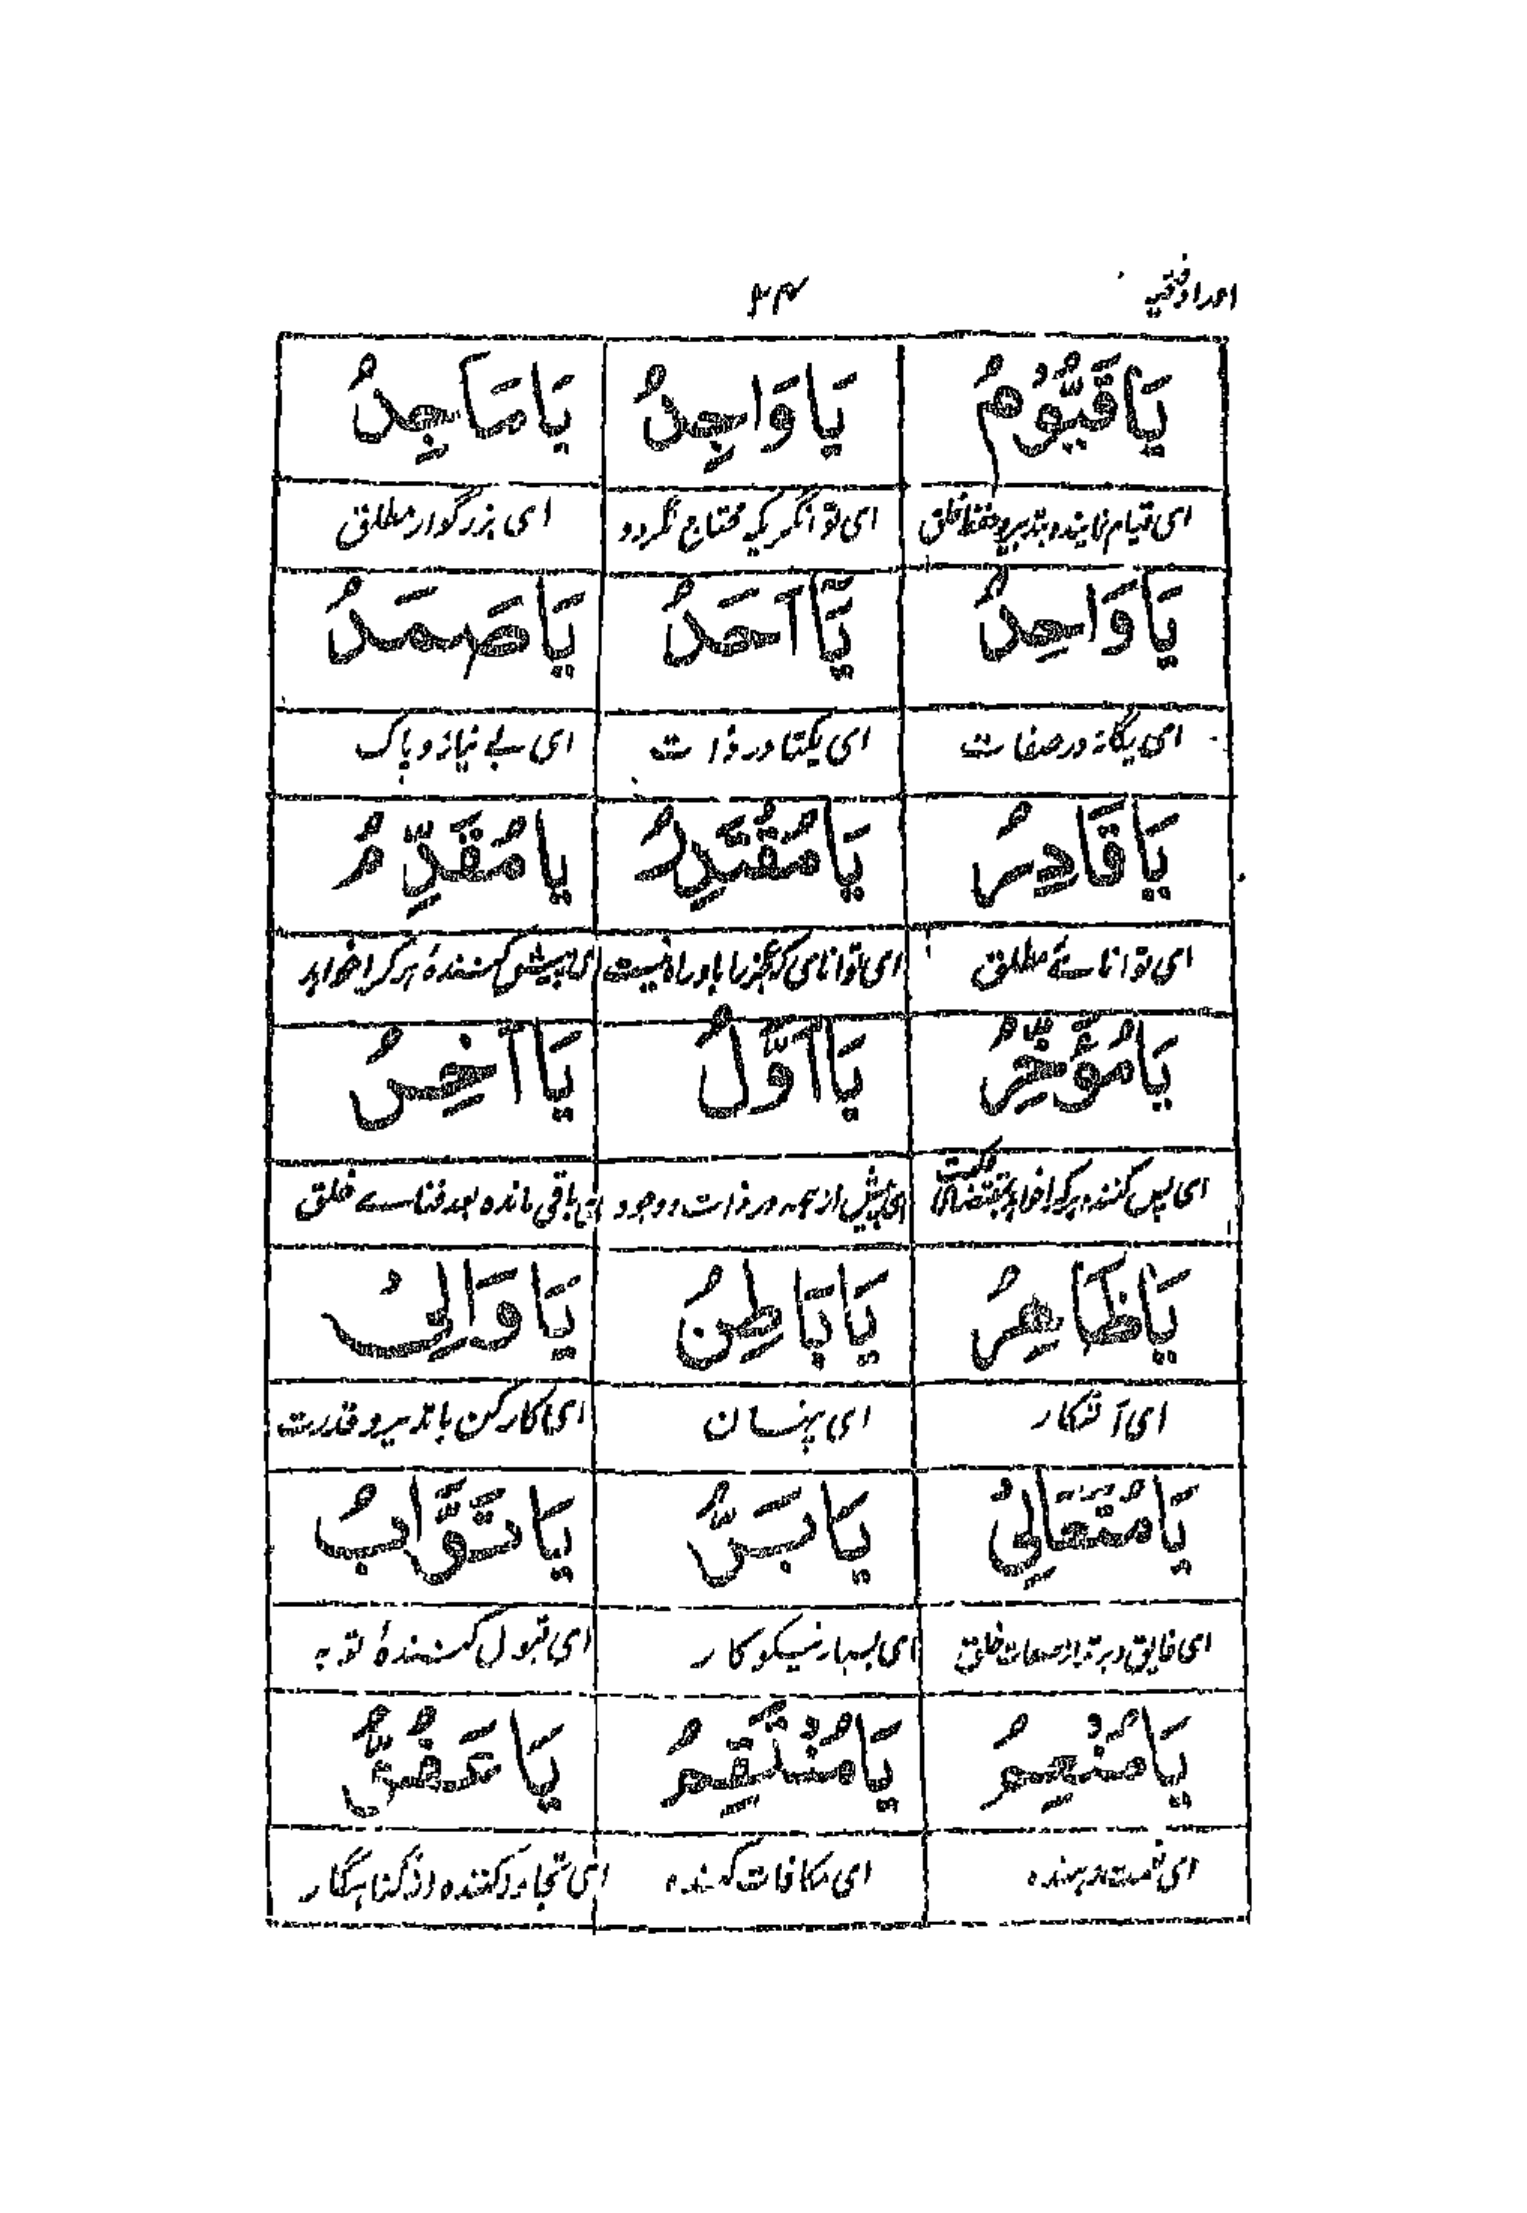 اوراد فتحیه ۲۴
یَا قَیُّوْمُ یَا وَاجِدُ یَا مَاجِدُ
ای قیام نمایندہ بتدبیر و حفظ خلق ای توانگریکہ محتاج نگردد ای بزرگوار مطلق
یَا وَاحِدُ یَا اَحَدُ یَا صَمَدُ
ای یگانہ در صفات ای یکتا در ذات ای بے نیاز و پاک
یَا قَادِرُ یَا مُقْتَدِرُ یا مُقَدِّمُ
ای توانائے مطلق ای توانای کہ عجز را باو راہ نیست ای پیش کنندۂ ہر کرا خواہد
یَا مُؤَخِّرُ یَا اَوَّلُ یَا آخِرُ
ای پس کنندہ ہر کرا خواہد بمقتضای حکمت ای پیش از ہمہ در ذات و وجود ای باقی ماندہ بعد فناے خلق
یَا ظَاهِرُ یَا بَاطِنُ یَا وَالِیُ
ای آشکار ای پنہان ای کارکن با تدبیر و قدرت
یَا مُتَعَالِیُ یَا بَرُّ یَا تَوَّابُ
ای فایق و برتر از صفات خلق ای بسیار نیکوکار ای قبول کنندۂ توبہ
یَا مُنْعِمُ یَا مُنْتَقِمُ یَا عَفُوُّ
ای نعمت دہندہ ای مکافات کنندہ ای تجاوز کنندہ از گناہگار